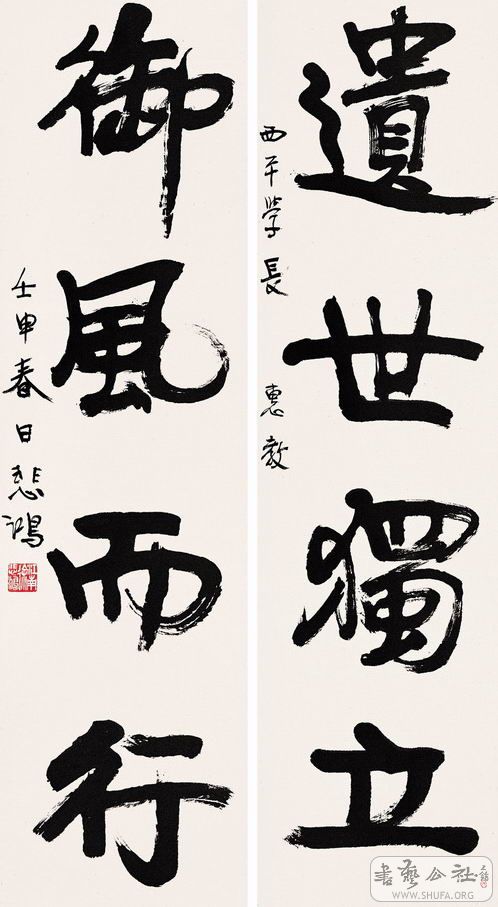 遺世獨立
西平學長 惠教
御風而行
壬申春日 悲鴻
書藝公社
WWW.SHUFA.ORG